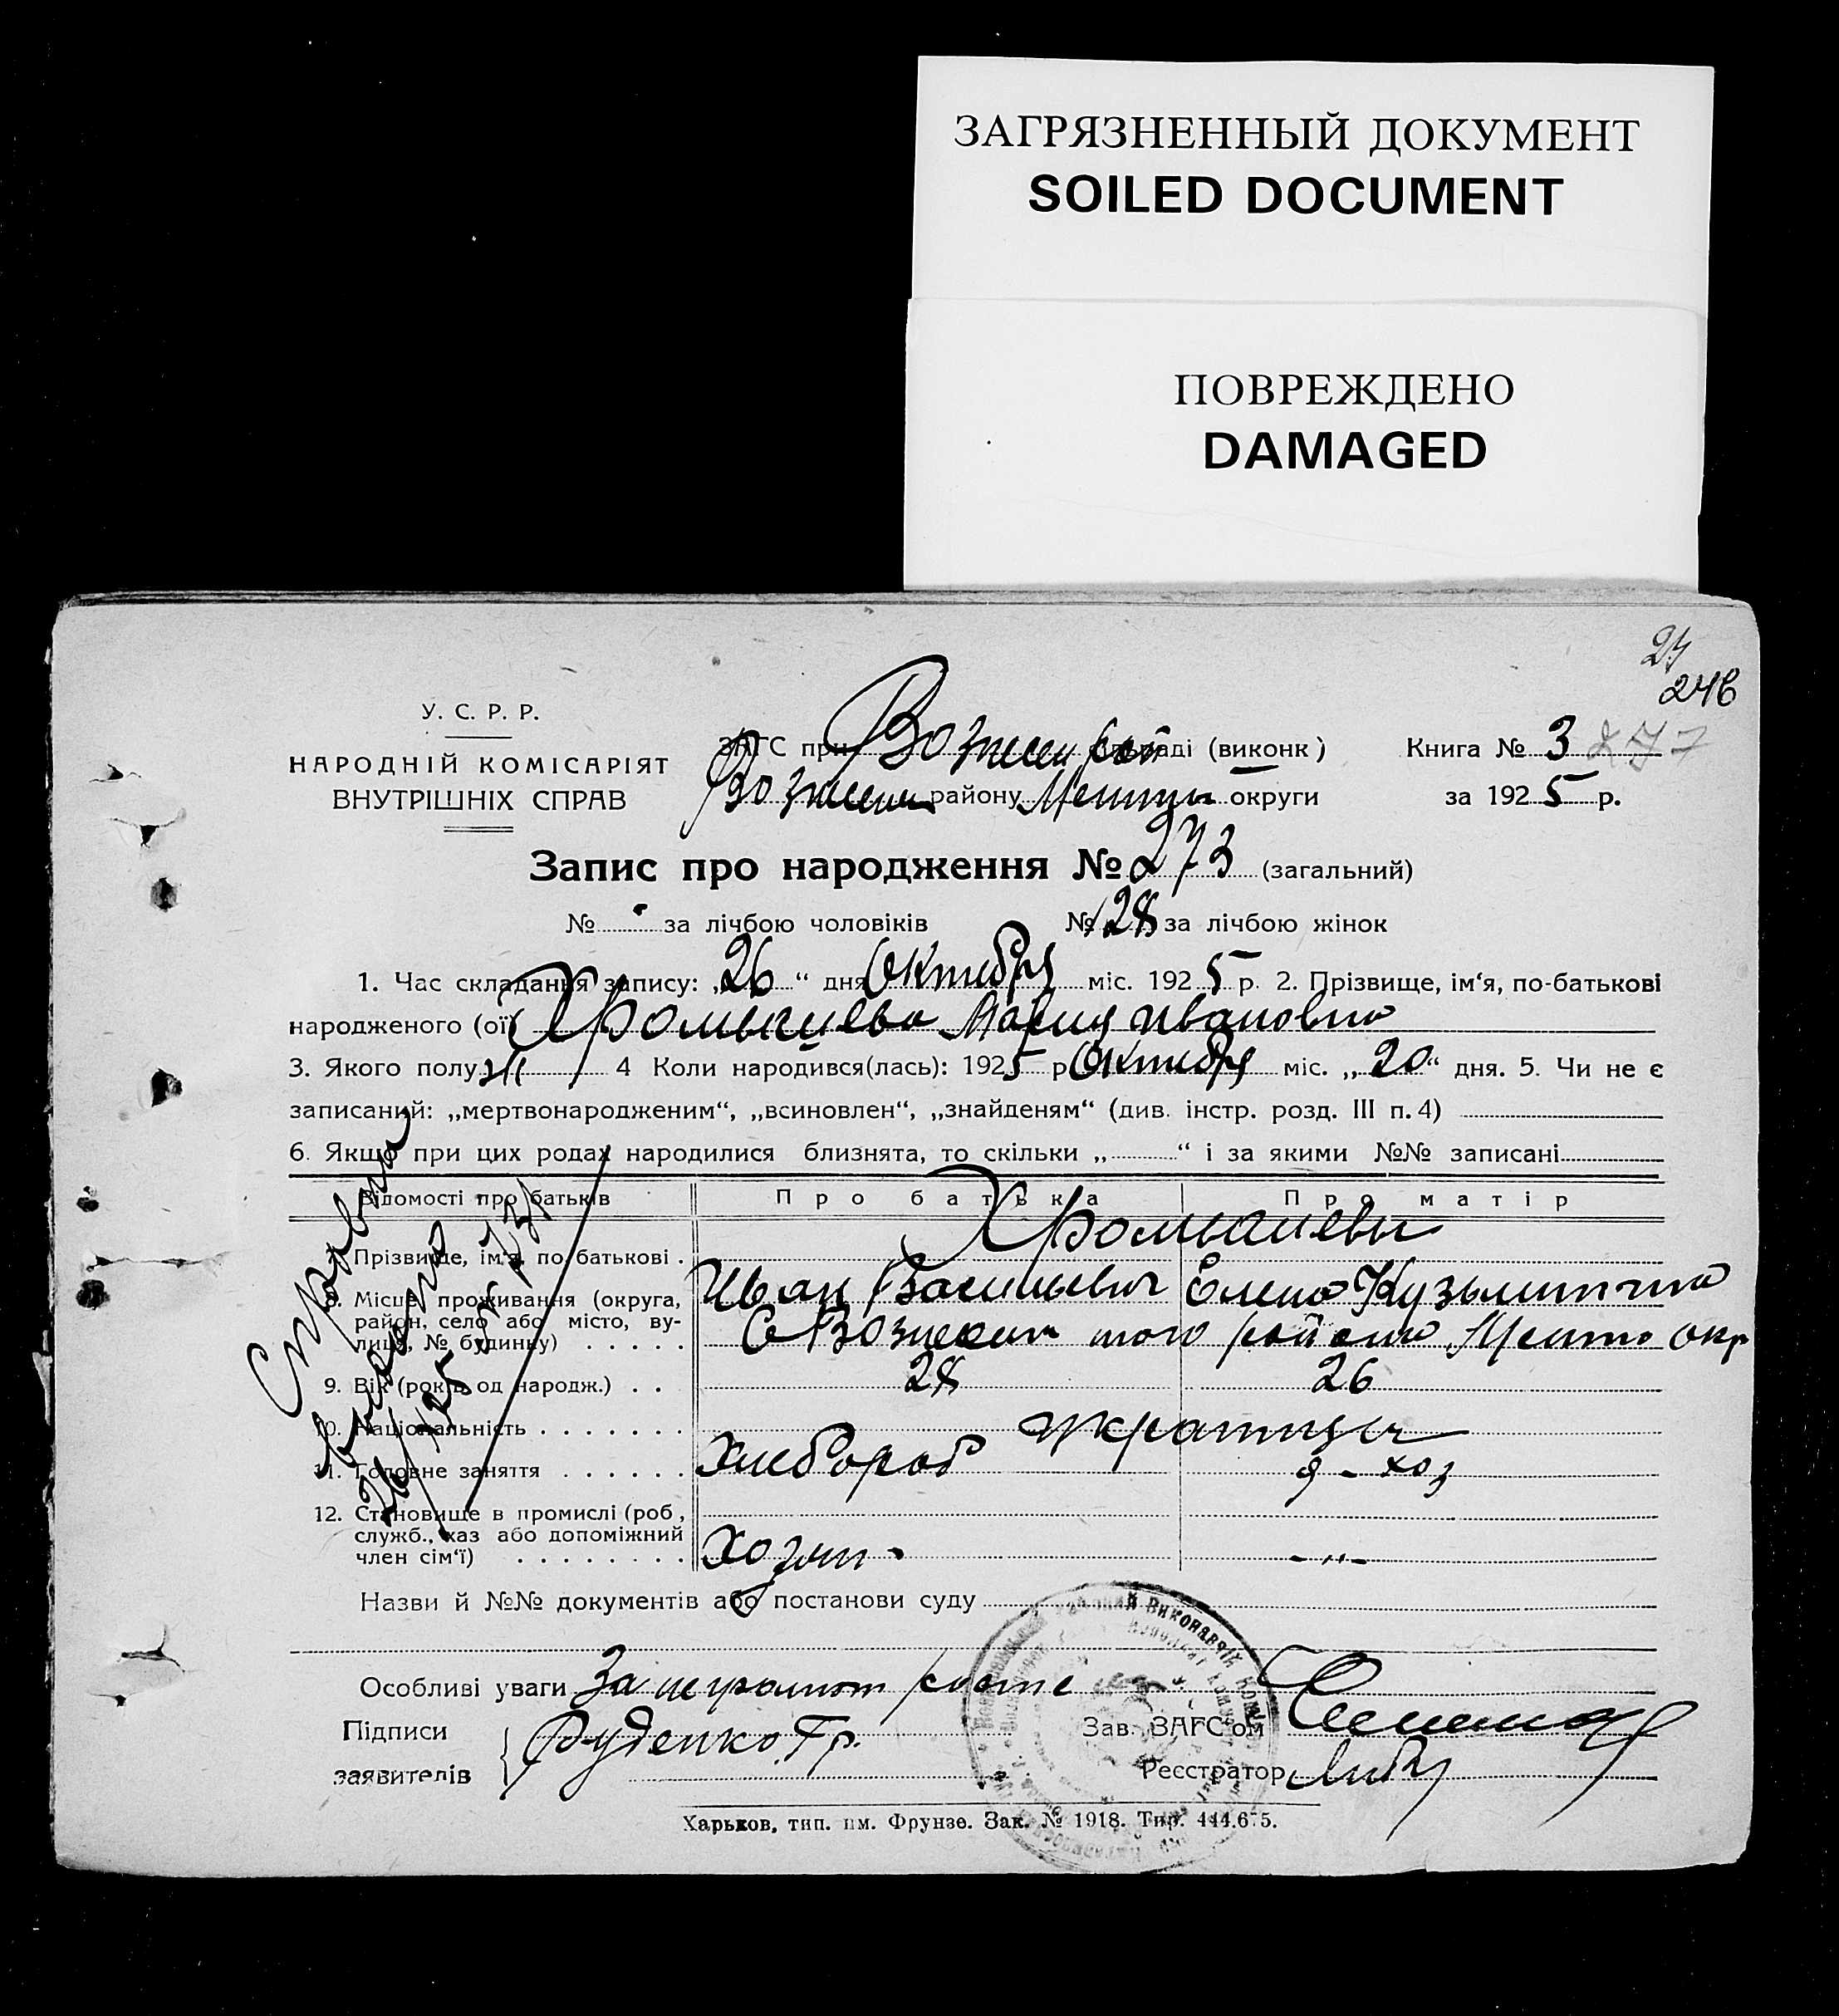 ЗАГРЯЗНЕННЫЙ ДОКУМЕНТ
SOILED DOCUMENT
ПОВРЕЖДЕНО
DAMAGED
246
У. С. Р. Р.
НАРОДНІЙ КОМІСАРІЯТ
ВНУТРІШНІХ СПРАВ
ЗАГС при Вознесен рай сільраді (виконк)
Вознесен району округи
Книга № 3 277
за 1925 р.
Запис про народження № 273 (загальний)
№ за лічбою чоловіків № 128 за лічбою жінок
1. Час складання запису: „26“ дня Октября міс. 1925 р. 2. Прізвище, ім‘я, по-батькові
народженого (ої) Мария Ивановна
3. Якого полу ж 4 Коли народився(лась): 1925 р Октября міс. „20“ дня. 5. Чи не є
записаний: „мертвонародженим“, „всиновлен“, „знайденям“ (див. інстр. розд. III п. 4)
6. Якщо при цих родах народилися близнята, то скільки „ “ і за якими №№ записані
Відомості про батьків Про батька Про матір
Прізвище, ім‘я, по батькові Иван Васильевич Елена Кузьминична
8. Місце проживання (округа, район, село або місто, вулиця, № будинку) С Вознесен того района окр
9. Вік (років од народж.) 28 26
10. Національність украинцы
11. Головне заняття Хлебороб д-хоз
12. Становище в промислі (роб, служб., хаз або допоміжний член сім‘ї) Хозяин - „ -
Назви й №№ документів або постанови суду
Особливі уваги За неграмотн
Підписи заявителів Руденко Гр.
Зав. ЗАГС‘ом
Реєстратор
Справка
выдана
26/
Харьков, тип. им. Фрунзе. Зак. № 1918. Тир. 444.675.